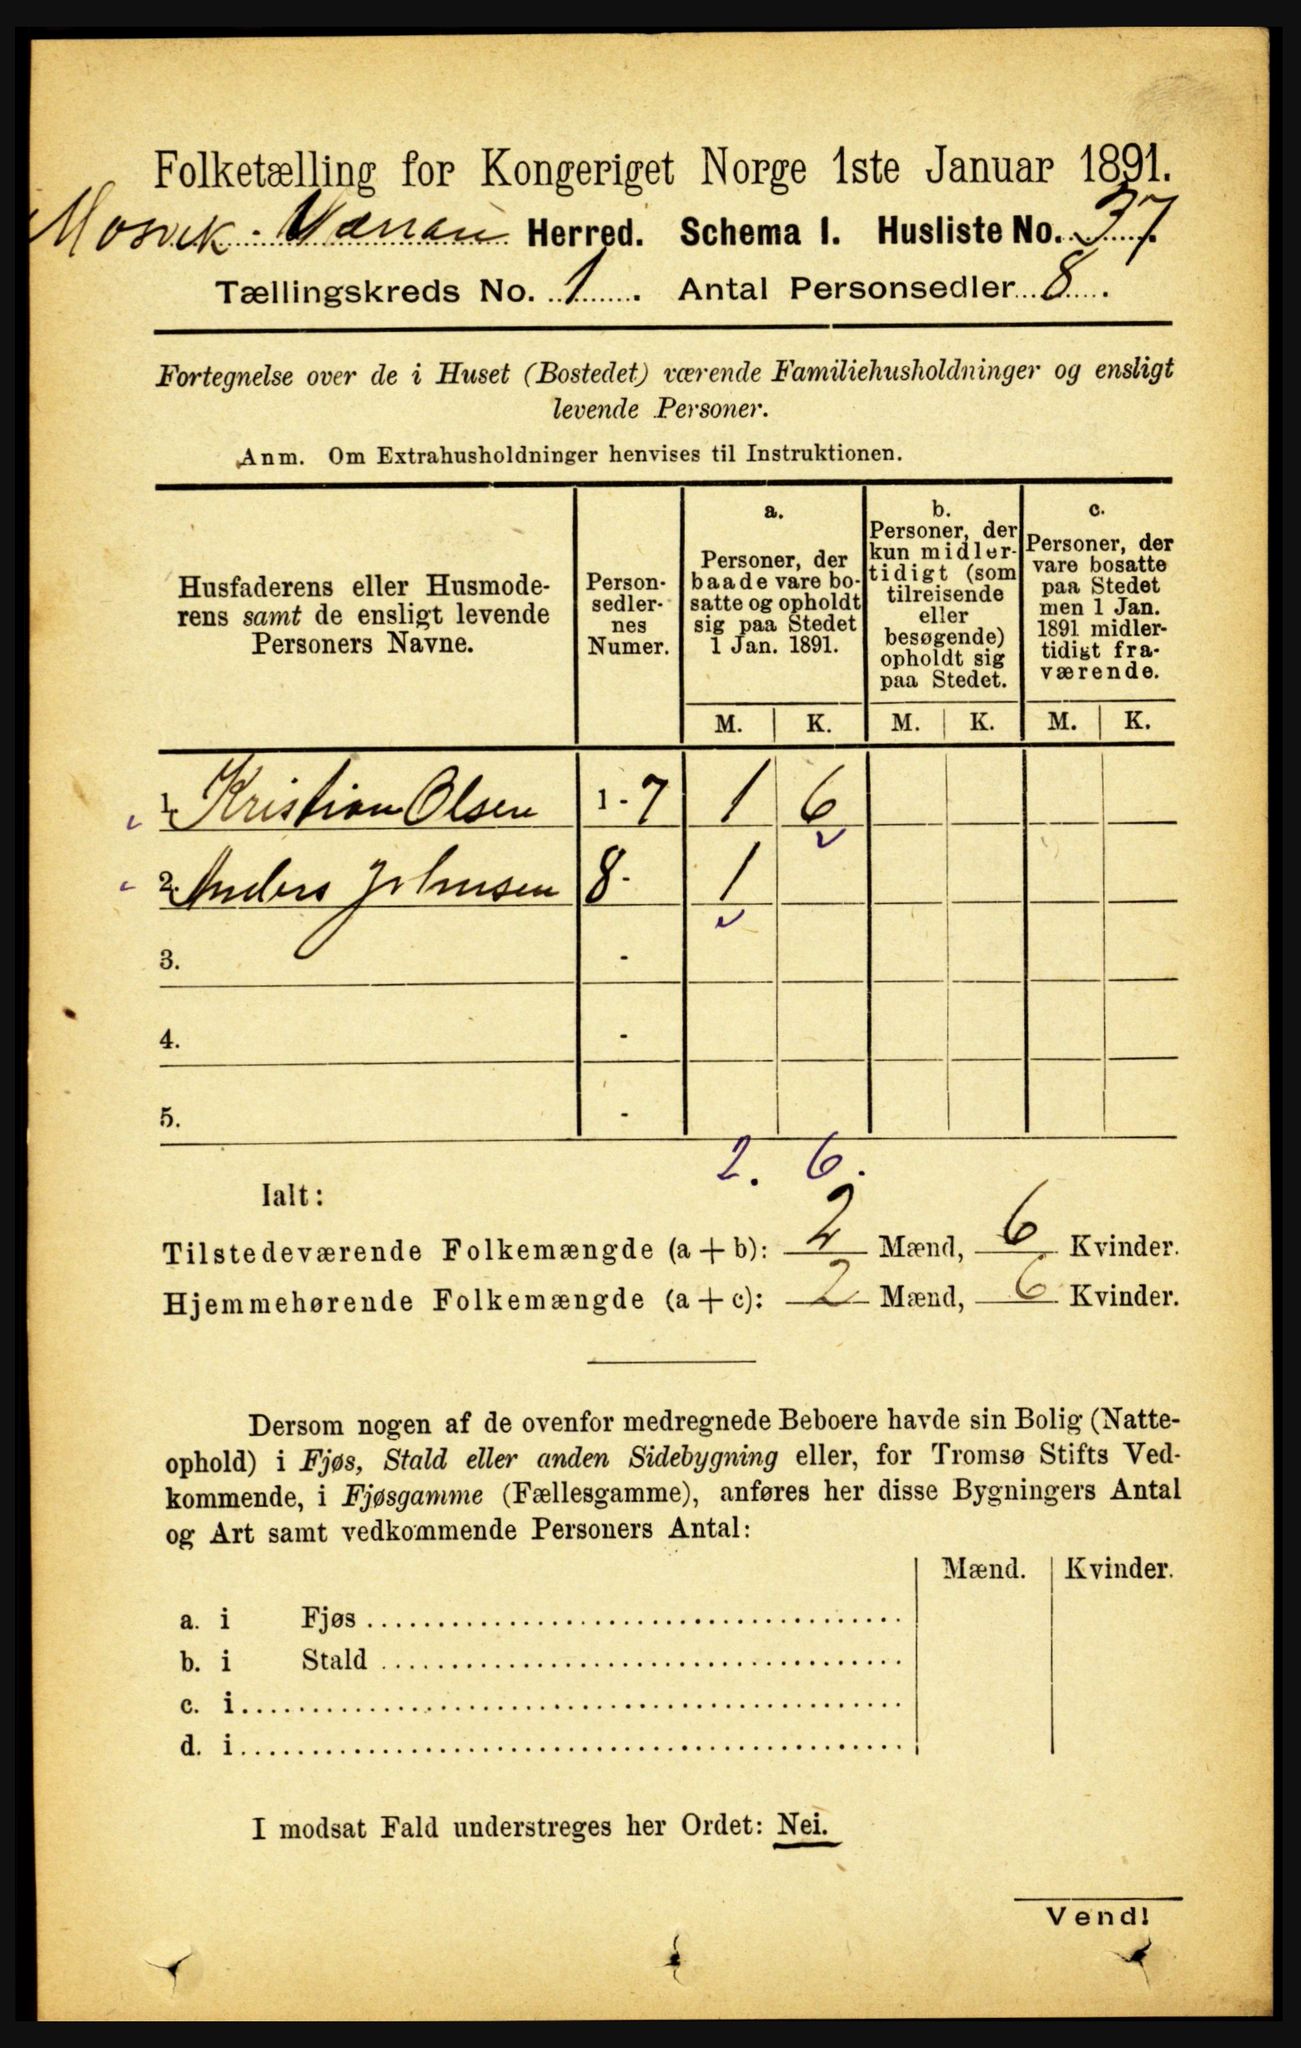 Folketælling for Kongeriget Norge 1ste Januar 1891.
Mosvik. Værran Herred. Schema I. Husliste No. 37.
Tællingskreds No. 1. Antal Personsedler 8.
Fortegnelse over de i Huset (Bostedet) værende Familiehusholdninger og ensligt
levende Personer.
Anm. Om Extrahusholdninger henvises til Instruktionen.
Husfaderens eller Husmode-
rens samt de ensligt levende
Personers Navne.
Person-
sedler-
nes
Numer.
a.
Personer, der
baade vare bo-
satte og opholdt
sig paa Stedet
1 Jan. 1891.
b.
Personer, der
kun midler-
tidigt (som
tilreisende
eller
besøgende)
opholdt sig
paa Stedet.
c.
Personer, der
vare bosatte
paa Stedet
men 1 Jan.
1891 midler-
tidigt fra-
værende.
M. K. M. K. M. K.
1. Kristian Olsen 1 - 7 1 6
2. Anders Johnsen 8 - 1
3. -
4. -
5. -
2. 6.
Ialt:
Tilstedeværende Folkemængde (a + b): 2 Mænd, 6 Kvinder.
Hjemmehørende Folkemængde (a + c): 2 Mænd, 6 Kvinder.
Dersom nogen af de ovenfor medregnede Beboere havde sin Bolig (Natte-
ophold) i Fjøs, Stald eller anden Sidebygning eller, for Tromsø Stifts Ved-
kommende, i Fjøsgamme (Fællesgamme), anføres her disse Bygningers Antal
og Art samt vedkommende Personers Antal:
Mænd. Kvinder.
a. i Fjøs
b. i Stald
c. i
d. i
I modsat Fald understreges her Ordet: Nei.
Vend!